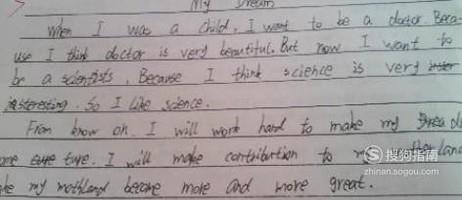 My Dream
When I was a child, I want to be a doctor. Beca-
use I think doctor is very beautiful. But now I want to
be a scientists, Because I think science is very
interesting. So I like science.
From know on. I will work hard to make my
ture. I will make contribution to
my mothland become more and more great.
搜狗指南
zhinan.sogou.com